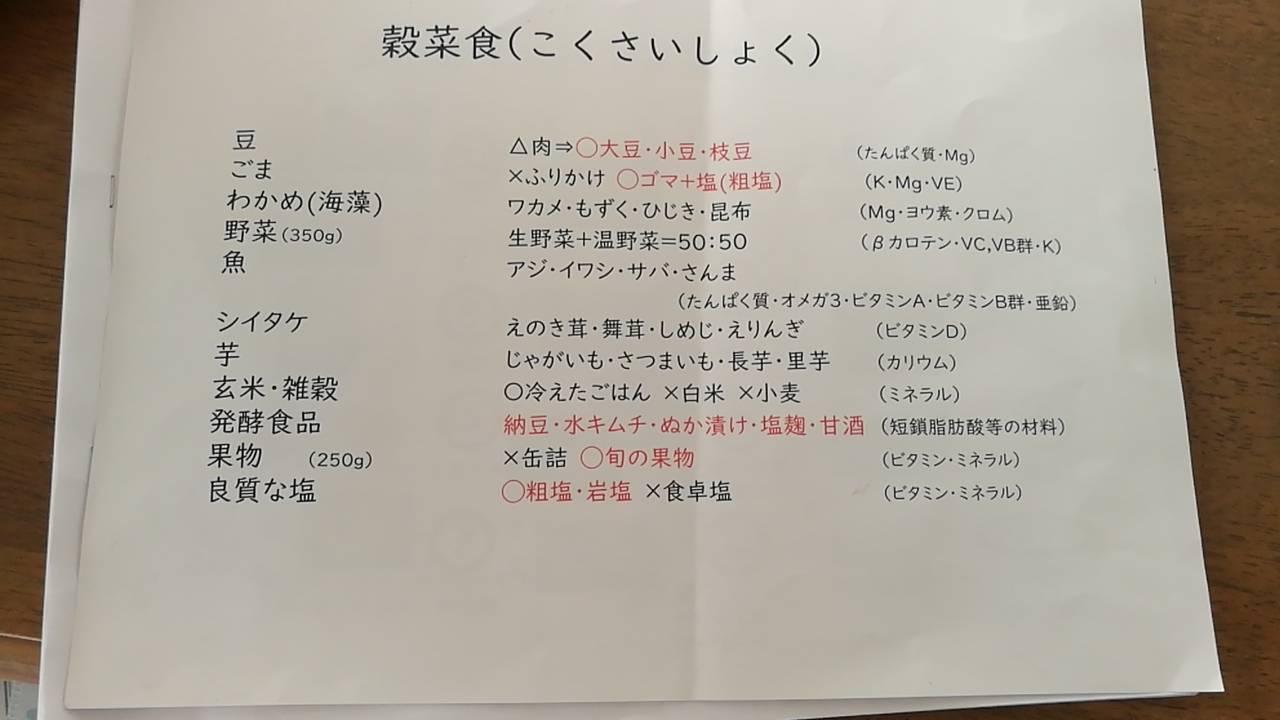 穀菜食(こくさいしょく)
豆 △肉⇒〇大豆・小豆・枝豆 (たんぱく質・Mg)
ごま ×ふりかけ 〇ゴマ+塩(粗塩) (K・Mg・VE)
わかめ(海藻) ワカメ・もずく・ひじき・昆布 (Mg・ヨウ素・クロム)
野菜(350g) 生野菜+温野菜=50:50 (βカロテン・VC,VB群・K)
魚 アジ・イワシ・サバ・さんま
(たんぱく質・オメガ3・ビタミンA・ビタミンB群・亜鉛)
シイタケ えのき茸・舞茸・しめじ・えりんぎ (ビタミンD)
芋 じゃがいも・さつまいも・長芋・里芋 (カリウム)
玄米・雑穀 〇冷えたごはん ×白米 ×小麦 (ミネラル)
発酵食品 納豆・水キムチ・ぬか漬け・塩麹・甘酒 (短鎖脂肪酸等の材料)
果物 (250g) ×缶詰 〇旬の果物 (ビタミン・ミネラル)
良質な塩 〇粗塩・岩塩 ×食卓塩 (ビタミン・ミネラル)